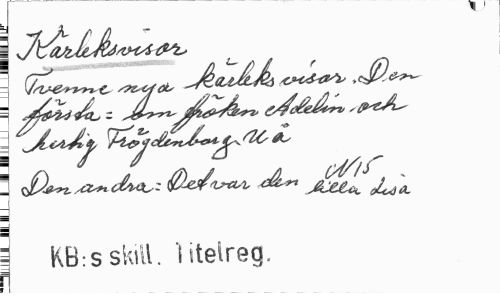 Kärleksvisor
Tvenne nya kärleksvisor. Den
första = om fröken Adelin och
hertig Frögdenborg. U å
N 15
Den andra = Det var den lilla Lisa
KB:s skill. Titelreg.